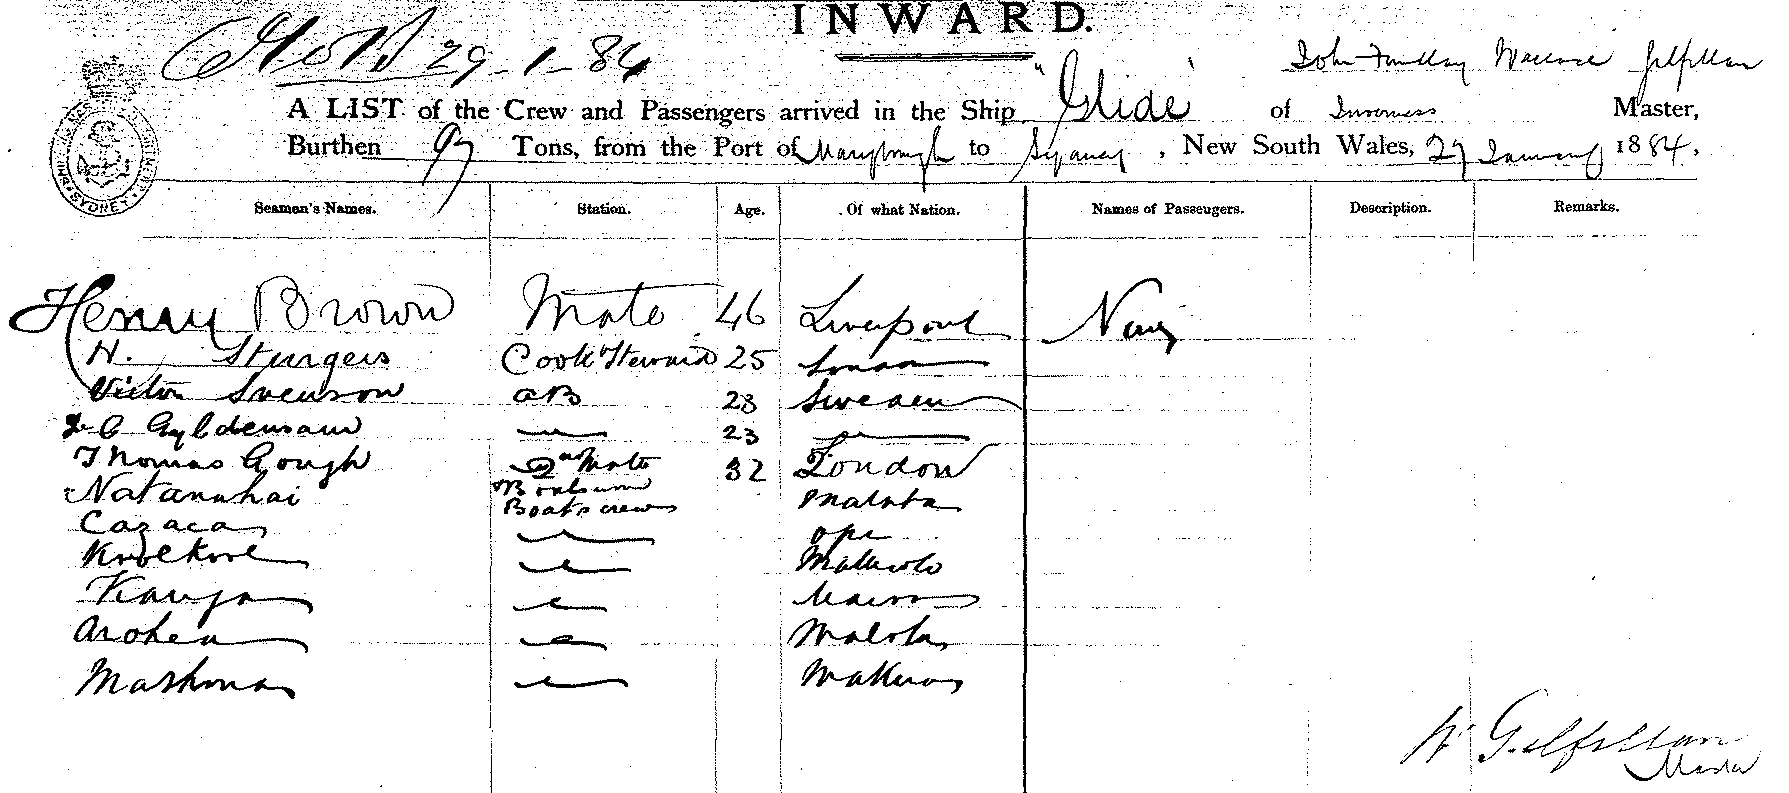 INWARD.
29-1-84
John Findlay Wallace Gilfillan
A LIST of the Crew and Passengers arrived in the Ship "Glide" of Inverness Master,
Burthen 97 Tons, from the Port of Maryborough to Sydney, New South Wales, 27 January 1884.
SYDNEY
Seamen's Names. Station. Age. Of what Nation. Names of Passengers. Description. Remarks.
Henry Brown Mate 46 Liverpool
H. Sturgess Cook Steward 25 London
Victor Svenson AB 23 Sweden
23
Thomas Gough 2nd Mate 32 London
Natanahai Boatswain Malota
Boats crew
Cazaca opi
Mallicolo
Kanga
Arohea Malota
Mashman
W Gilfillan
Master